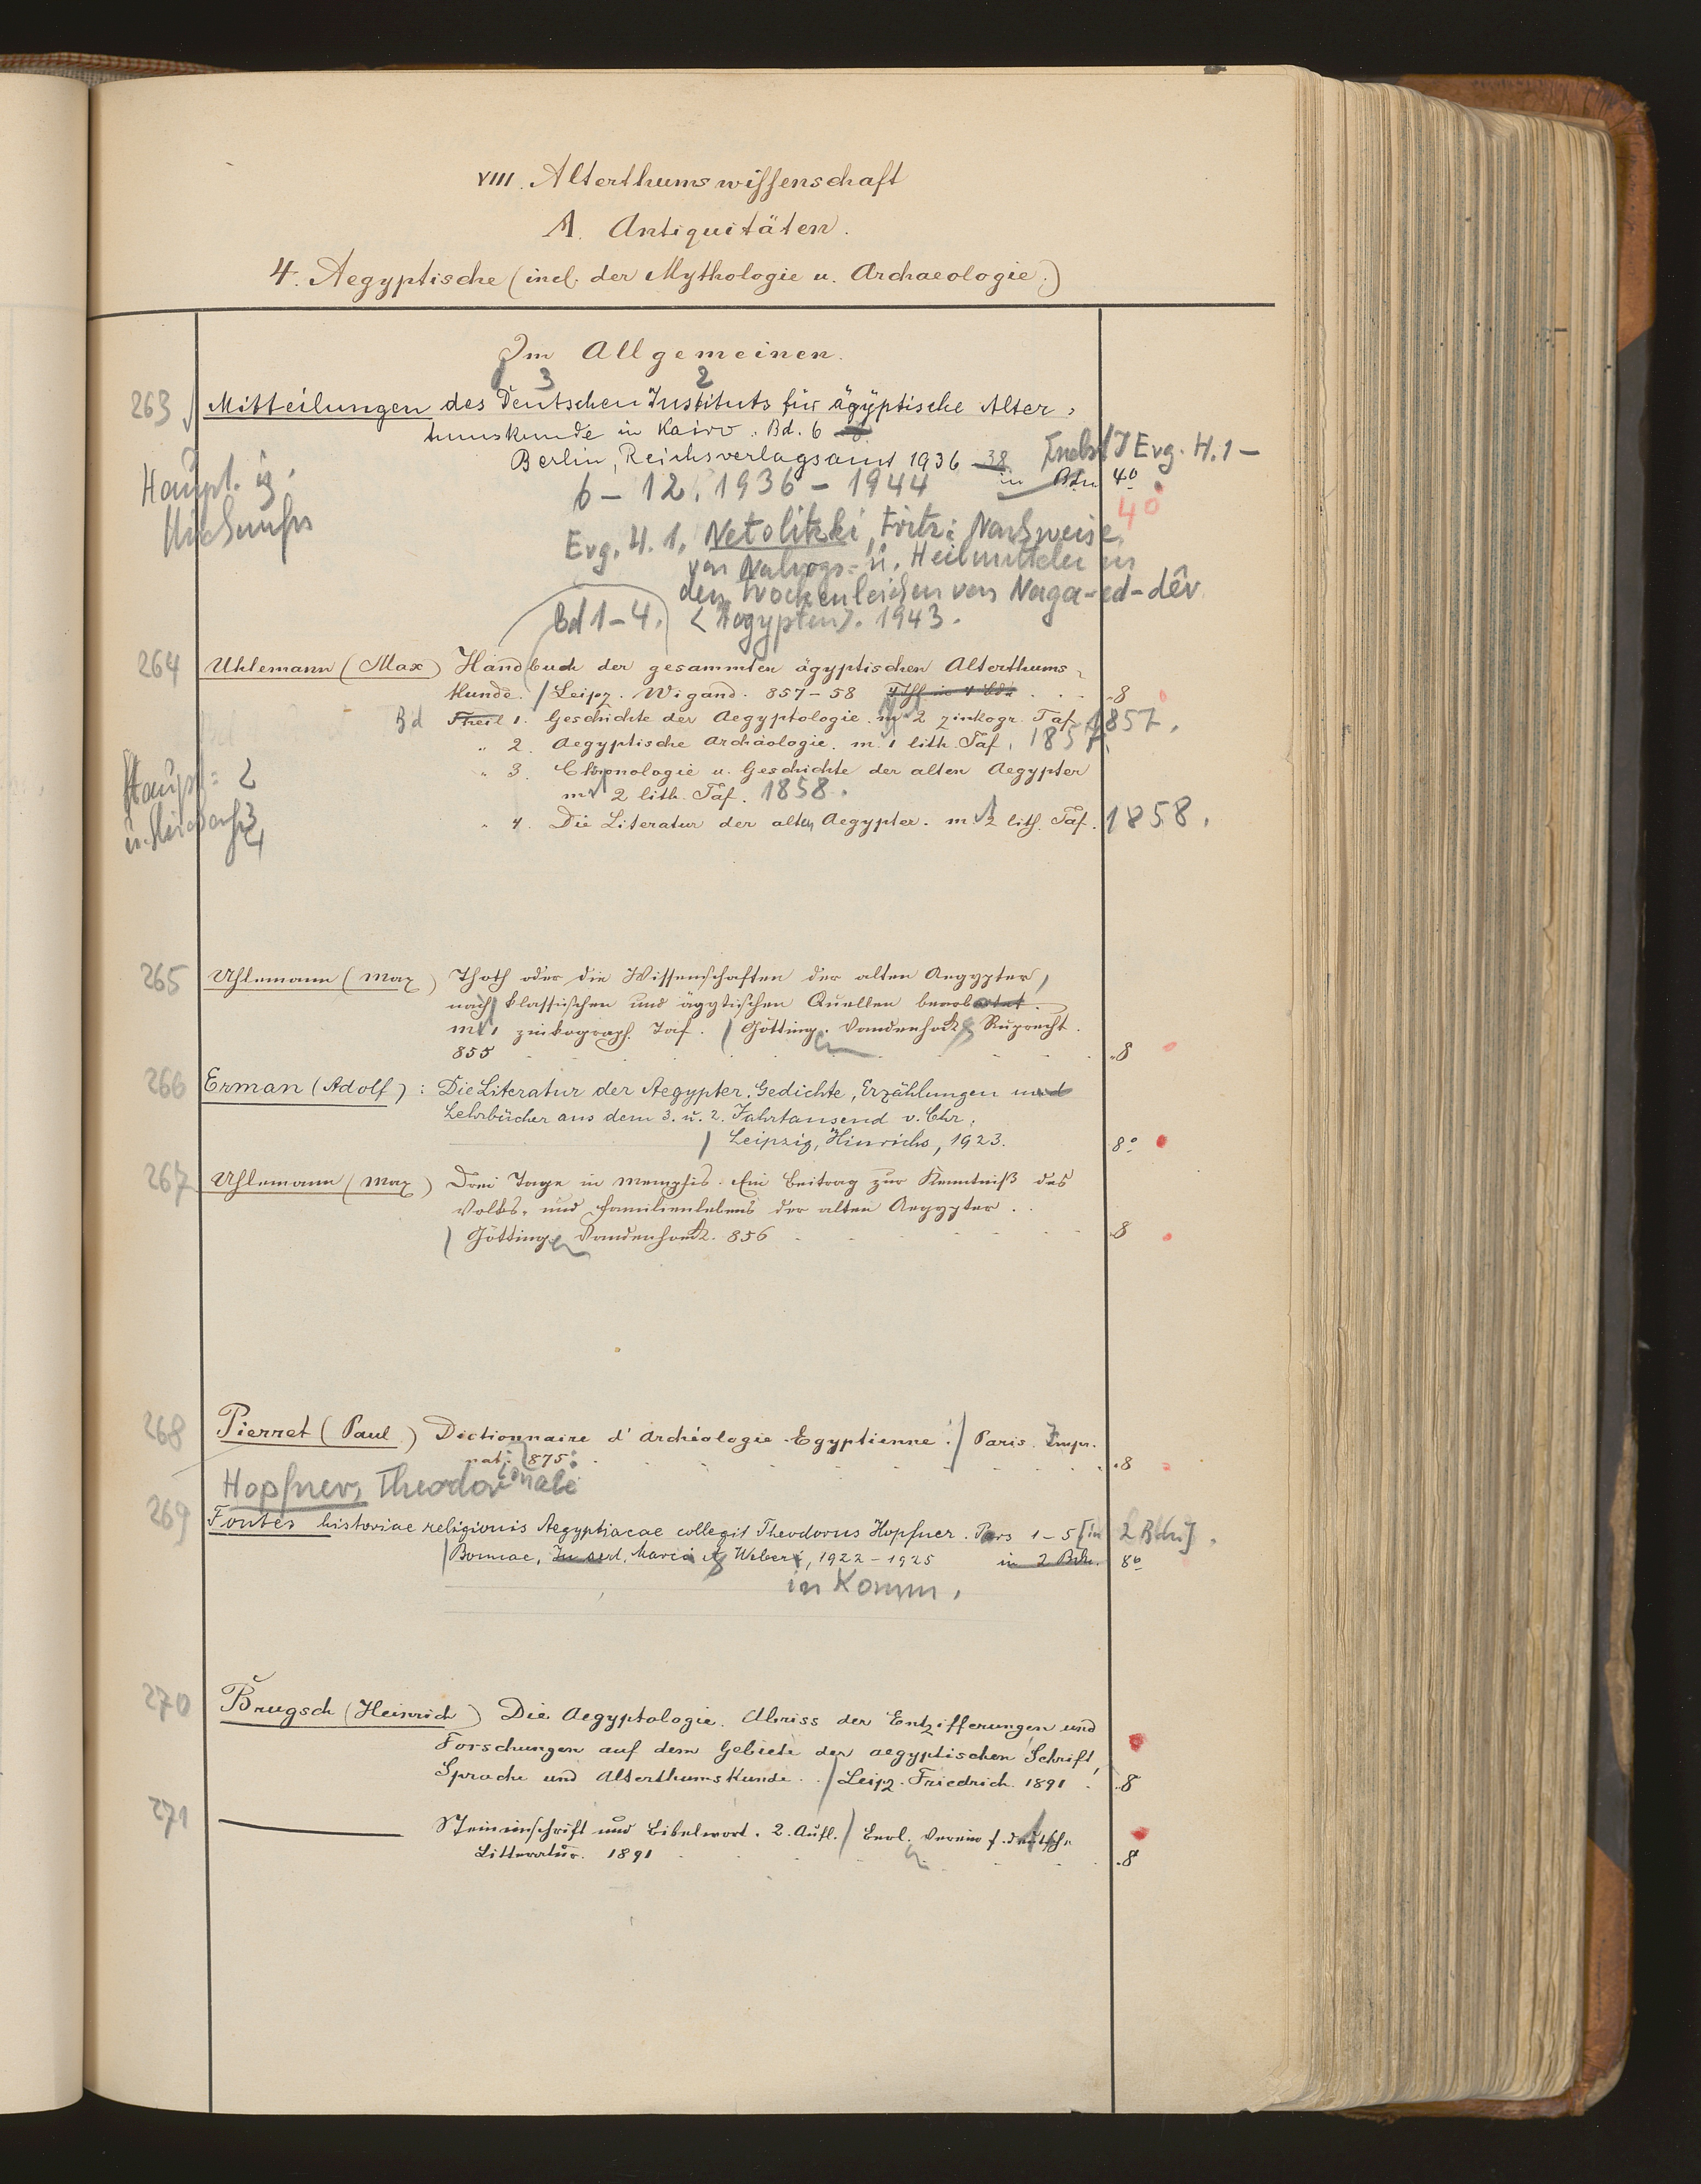 VIII. Alterthumswissenschaft
A. Antiquitäten.
4. Aegyptische (incl. der Mythologie u. Archaeologie.)
Im Allgemeinen.
3 2
263 Mitteilungen des Deutschen Instituts für ägyptische Alter-
tumskunde in Kairo. Bd. 6
Berlin, Reichsverlagsamt 1936 - 38 [nebst] Erg. H. 1 -
in Bdn 4°
6 - 12. 1936 - 1944
4°
Haupt.
Erg. H. 1. Netolitzki, Fritz: Nachweise
von Nahrgs- u. Heilmitteln in
den Trockenleichen von Naga-ed-dêr
Bd 1-4. <Aegypten>. 1943.
264 Uhlemann (Max) Handbuch der gesammten ägyptischen Alterthums-
kunde. / Leipz. Wigand. 857-58 4 Thl in 4 Bdn . . . 8
Bd Theil 1. Geschichte der Aegyptologie. m. 2 zinkogr. Taf. 1857.
" 2. Aegyptische Archäologie. m. 1 lith. Taf. 1857.
" 3. Chronologie u. Geschichte der alten Aegypter
m. 2 lith. Taf. 1858.
" 4. Die Literatur der alten Aegypter. m. 2 lith. Taf. 1858.
265 Uhlemann (Max) Thoth oder die Wissenschaften der alten Aegypter,
nach klassischen und ägytischen Quellen bearbeitet.
m. 1 zinkograph. Taf. / Götting. Vandenhoek & Ruprecht.
855 . . . 8
266 Erman (Adolf): Die Literatur der Aegypter. Gedichte, Erzählungen und
Lehrbücher aus dem 3. u. 2. Jahrtausend v. Chr.
/ Leipzig, Hinrichs, 1923. 8°
267 Uhlemann (Max) Drei Tage in Memphis. Ein Beitrag zur Kenntniß des
Volks- und Familienlebens der alten Aegypter.
/ Göttingen Vandenhoeck. 856 . . . 8
268 Pierret (Paul) Dictionnaire d'Archéologie Egyptienne. / Paris. Impr.
nationale 875. . . . 8
Hopfner, Theodor
269 Fontes historiae religionis Aegyptiacae collegit Theodorus Hopfner. Pars 1-5 [in 2 Bdn].
/ Bonnae, Marci & Weberi, 1922-1925 in 2 Bdn. 8°
in Komm.
270 Brugsch (Heinrich) Die Aegyptologie. Abriss der Entzifferungen und
Forschungen auf dem Gebiete der aegyptischen Schrift,
Sprache und Alterthumskunde. / Leipz. Friedrich. 1891 . 8
271 ——— Steininschrift und Bibelwort. 2. Aufl. / Berl. Verein f. deutsche
Litteratur. 1891 . . . 8